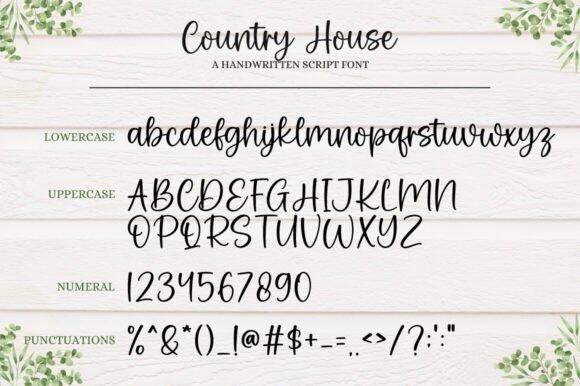 Country House
A HANDWRITTEN SCRIPT FONT
LOWERCASE abcdefghijklmnopqrstuvwxyz
UPPERCASE ABCDEFGHIJKLMN
OPQRSTUVWXYZ
NUMERAL 1234567890
PUNCTUATIONS %^&*()_!@#$+-=,.<>/?;':"